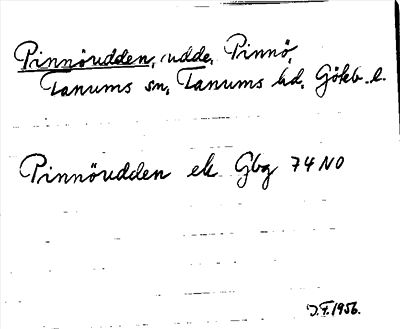 Pinnöudden, udde, Pinnö,
Tanums sn, Tanums hd. Göteb. l.
Pinnöudden ek Gbg 74 NO
J.F. 1956.